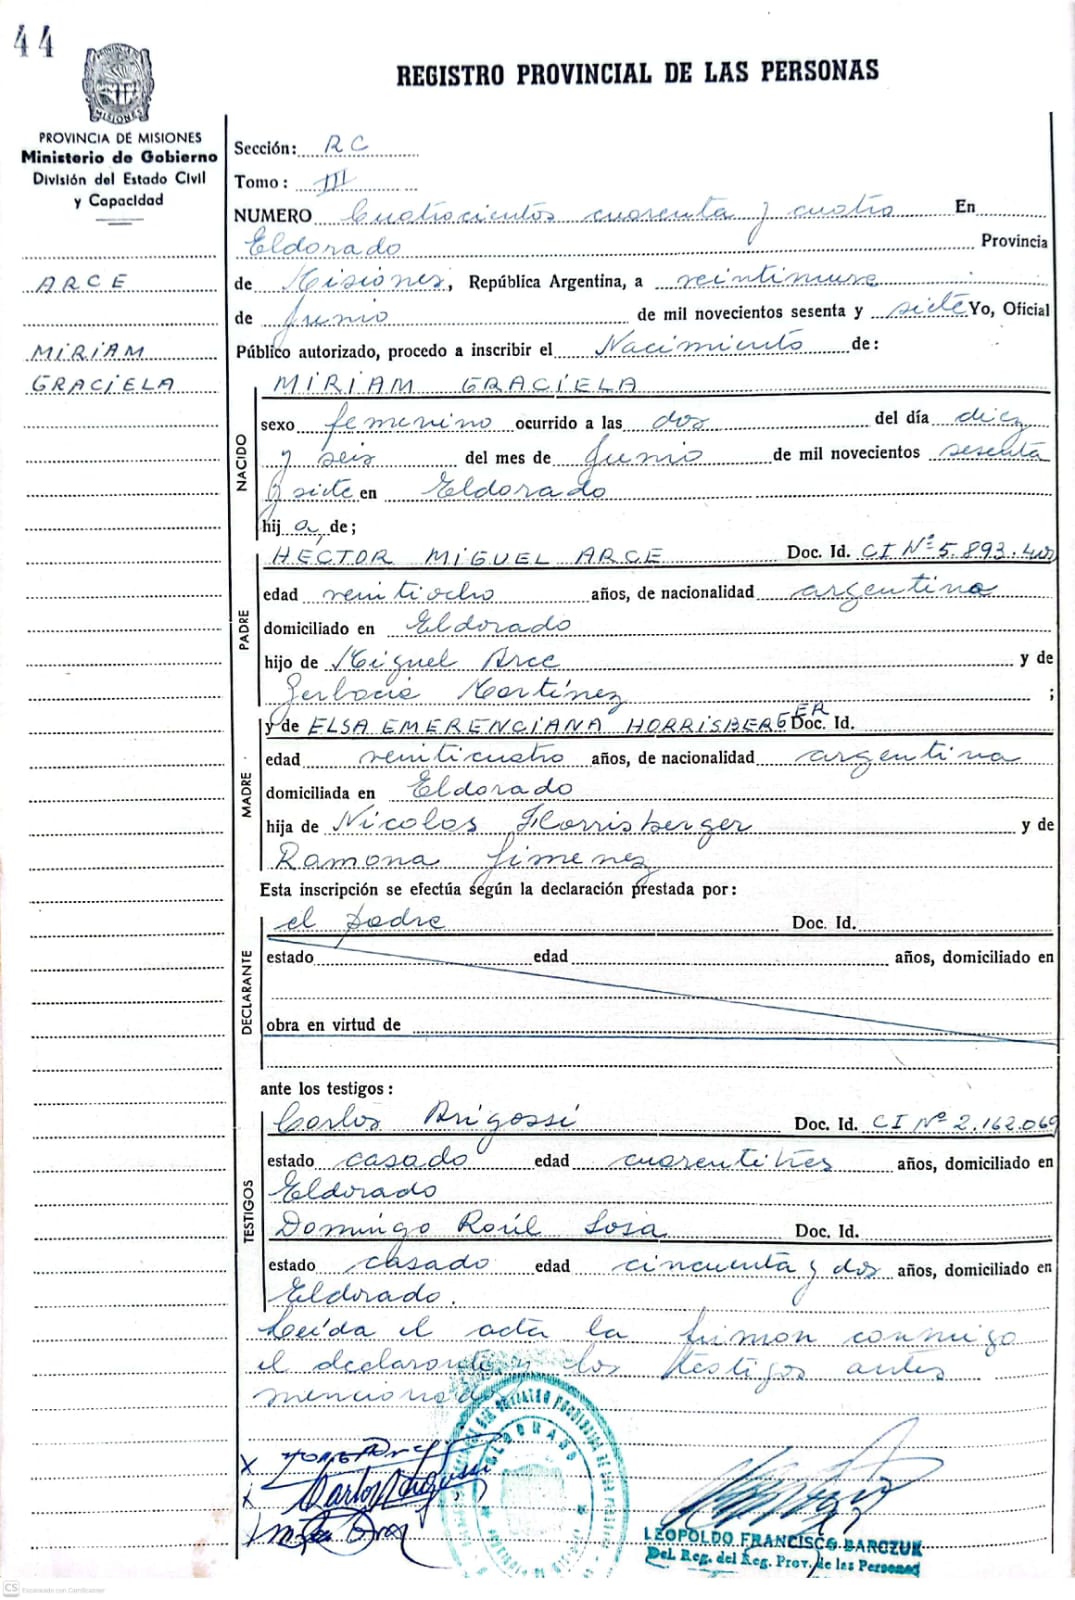 44
REGISTRO PROVINCIAL DE LAS PERSONAS
PROVINCIA DE MISIONES
MISIONES
PROVINCIA DE MISIONES
Ministerio de Gobierno
División del Estado Civil
y Capacidad
ARCE
MIRIAM
GRACIELA
Sección: RC
Tomo: III
NUMERO Cuatrocientos cuarenta y cuatro En
Eldorado Provincia
de Misiones, República Argentina, a veintinueve
de Junio de mil novecientos sesenta y siete Yo, Oficial
Público autorizado, procedo a inscribir el Nacimiento de:
NACIDO
MIRIAM GRACIELA
sexo femenino ocurrido a las dos del día diez
y seis del mes de Junio de mil novecientos sesenta
y siete en Eldorado
hij a, de;
PADRE
HECTOR MIGUEL ARCE Doc. Id. CI Nº 5.893.400
edad veintiocho años, de nacionalidad argentina
domiciliado en Eldorado
hijo de Miguel Arce y de
Martínez ;
MADRE
y de ELSA EMERENCIANA HORRISBERGER Doc. Id.
edad veinticuatro años, de nacionalidad argentina
domiciliada en Eldorado
hija de Nicolas Horrisberger y de
Ramona Jimenez
Esta inscripción se efectúa según la declaración prestada por:
DECLARANTE
el padre Doc. Id.
estado edad años, domiciliado en
obra en virtud de
ante los testigos:
TESTIGOS
Carlos Arigossi Doc. Id. CI Nº 2.162.069
estado casado edad cuarentitrés años, domiciliado en
Eldorado
Domingo Raúl Sosa Doc. Id.
estado casado edad cincuenta y dos años, domiciliado en
Eldorado.
Leída el acta la firman conmigo
el declarante y los testigos antes
mencionados
ELDORADO
LEOPOLDO FRANCISCO BARCZUK
Del. Reg. del Reg. Prov. de las Personas
CS Escaneado con CamScanner